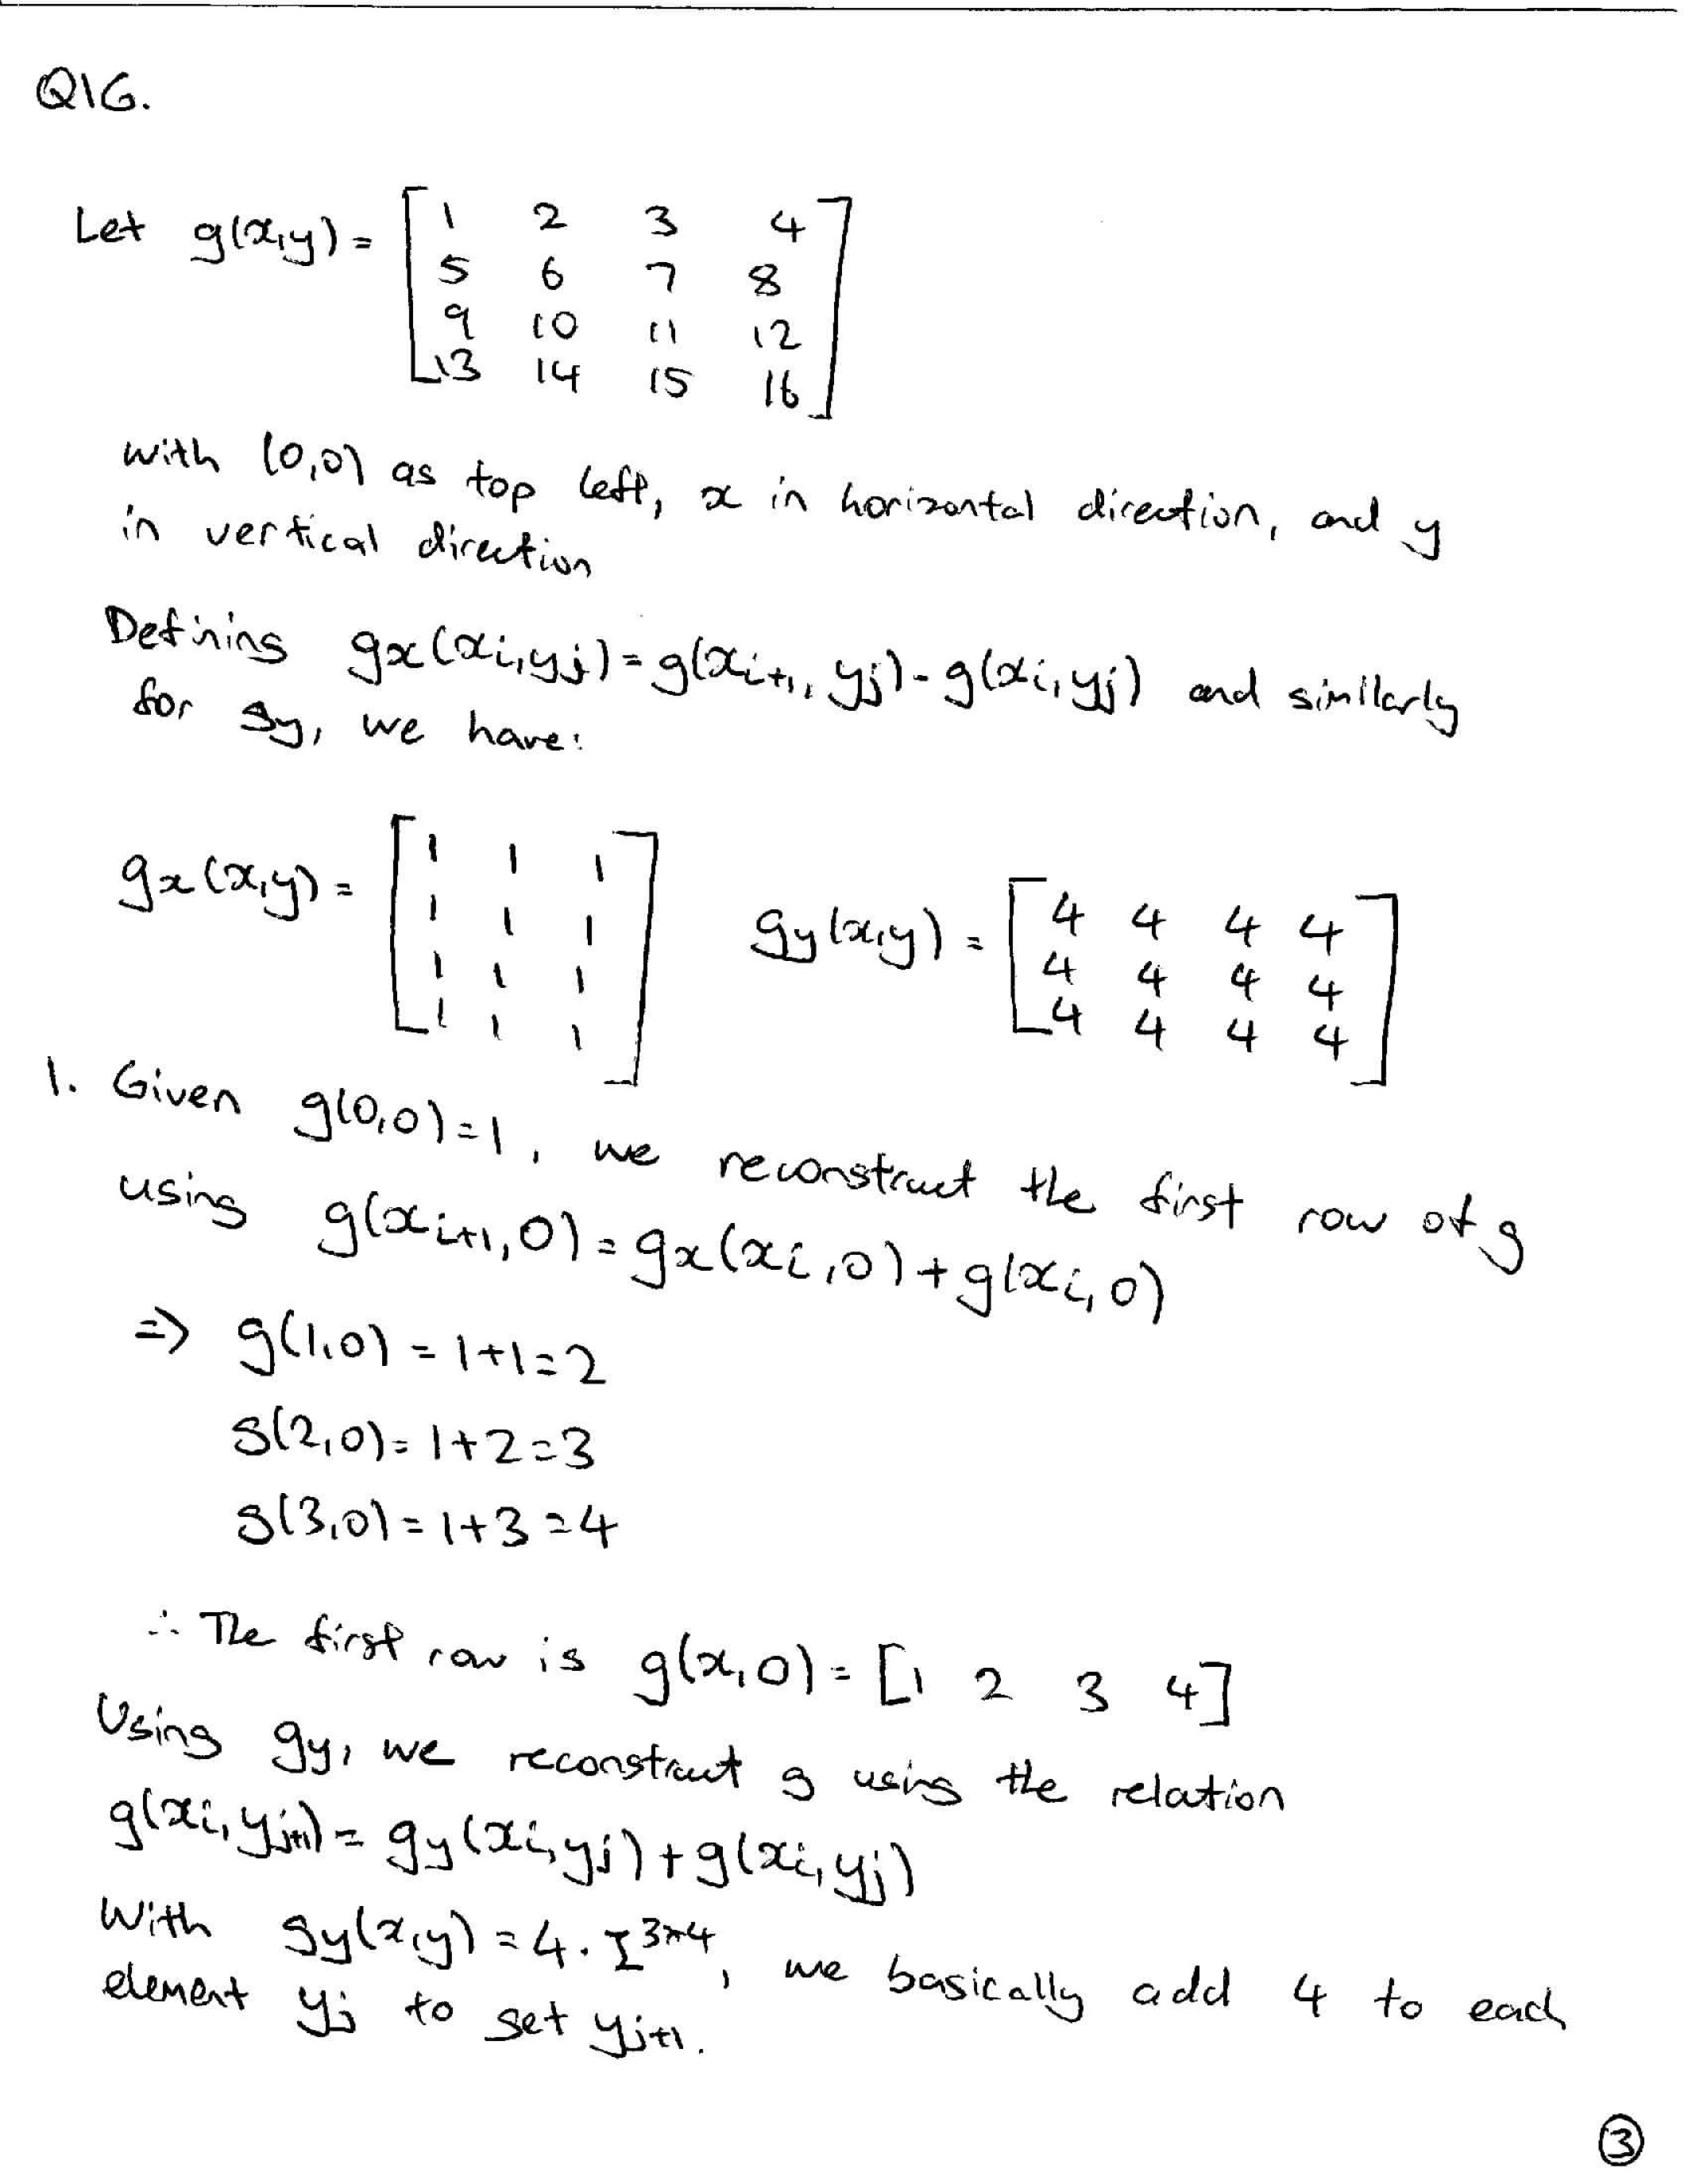 Q16.
Let g(x,y) = [1 2 3 4
5 6 7 8
9 10 11 12
13 14 15 16]
with (0,0) as top left, x in horizontal direction, and y
in vertical direction
Defining gx(xi,yj) = g(xi+1, yj) - g(xi,yj) and similarly
for gy, we have:
gx(x,y) = [1 1 1
1 1 1
1 1 1
1 1 1]
gy(x,y) = [4 4 4 4
4 4 4 4
4 4 4 4]
1. Given g(0,0) = 1, we reconstruct the first row of g
using g(xi+1,0) = gx(xi,0) + g(xi,0)
=> g(1,0) = 1+1 = 2
g(2,0) = 1+2 = 3
g(3,0) = 1+3 = 4
∴ The first row is g(x,0) = [1 2 3 4]
Using gy, we reconstruct g using the relation
g(xi,yj+1) = gy(xi,yj) + g(xi,yj)
With gy(x,y) = 4 . I^3×4, we basically add 4 to each
element yj to get yj+1.
3